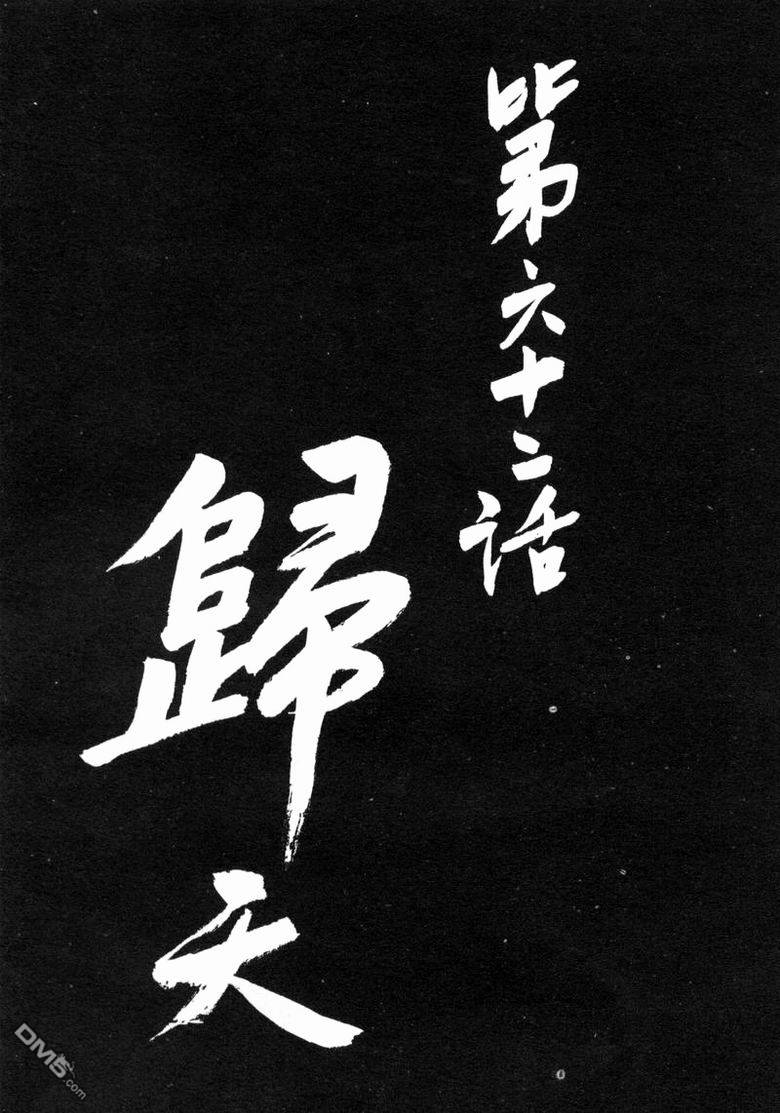 第六十二话
歸天
DM5.com